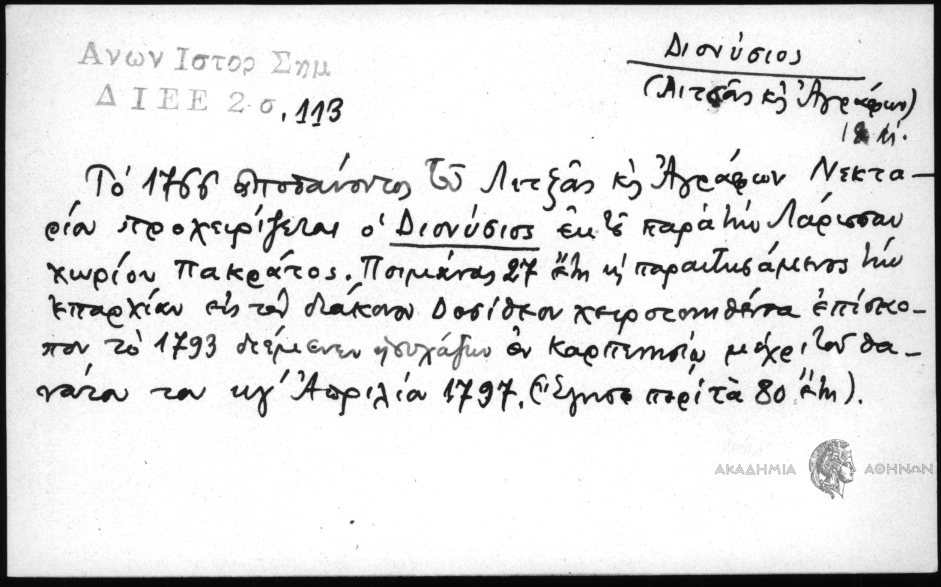 Ανων Ιστορ Σημ
Δ Ι Ε Ε 2 σ. 113
Διονύσιος
(Λιτσᾶς κ̀ Ἀγράφων)
18 αἰ.
Τό 1766 ἀποθανόντος τοῦ Λιτζᾶς κ̀ Ἀγράφων Νεκτα-
ρίου προχειρίζεται ὁ Διονύσιος ἐκ τοῦ παρὰ τὴν Λάρισσαν
χωρίου Πακράτος. Ποιμάνας 27 ἔτη κ̀ παραιτησάμενος τὴν
ἐπαρχίαν εἰς τὸν διάκονον Δοσίθεον χειροτονηθέντα ἐπίσκο-
πον τὸ 1793 διέμενεν ἡσυχάζων ἐν Καρπενησίῳ μέχρι τοῦ θα-
νάτου του κγ' Ἀπριλίου 1797. (Ἔζησε περί τὰ 80 ἔτη).
ΑΚΑΔΗΜΙΑ ΑΘΗΝΩΝ